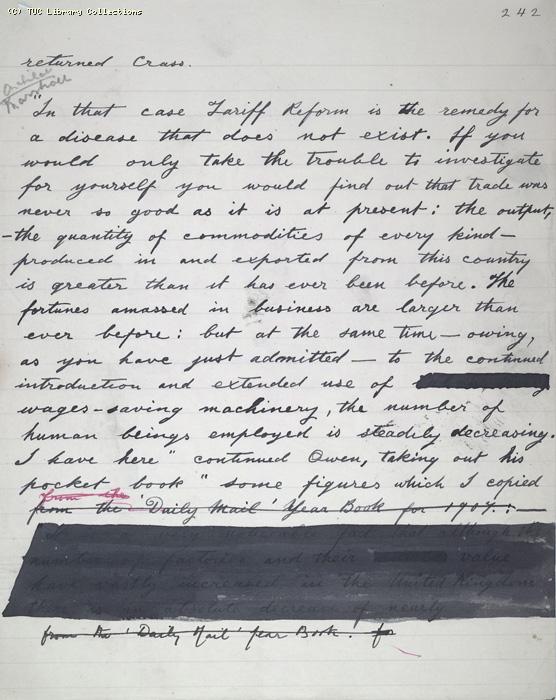 (C) TUC Library Collections
242
returned Crass.
"In that case Tariff Reform is the remedy for
a disease that does not exist. If you
would only take the trouble to investigate
for yourself you would find out that trade was
never so good as it is at present: the output,
-the quantity of commodities of every kind-
produced in and exported from this country
is greater than it has ever been before. The
fortunes amassed in business are larger than
ever before: but at the same time - owing,
as you have just admitted - to the continued
introduction and extended use of
wages-saving machinery, the number of
human beings employed is steadily decreasing.
I have here" continued Owen, taking out his
pocket book "some figures which I copied
from the
from the 'Daily Mail' Year Book for 1907:-
that although the
number factories and their value
have vastly increased in the United Kingdom
there is an absolute decrease of nearly
from the 'Daily Mail' Year Book. for